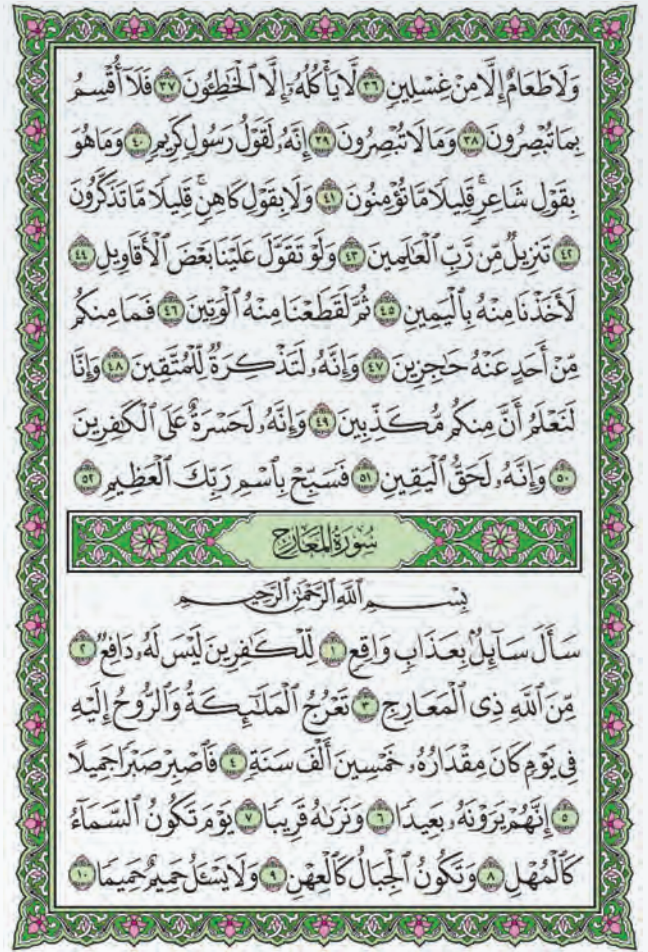 وَلَا طَعَامٌ إِلَّا مِنْ غِسْلِينٍ ٣٦ لَّا يَأْكُلُهُۥٓ إِلَّا ٱلْخَٰطِـُٔونَ ٣٧ فَلَآ أُقْسِمُ
بِمَا تُبْصِرُونَ ٣٨ وَمَا لَا تُبْصِرُونَ ٣٩ إِنَّهُۥ لَقَوْلُ رَسُولٍ كَرِيمٍ ٤٠ وَمَا هُوَ
بِقَوْلِ شَاعِرٍۚ قَلِيلًا مَّا تُؤْمِنُونَ ٤١ وَلَا بِقَوْلِ كَاهِنٍۚ قَلِيلًا مَّا تَذَكَّرُونَ
٤٢ تَنزِيلٌ مِّن رَّبِّ ٱلْعَٰلَمِينَ ٤٣ وَلَوْ تَقَوَّلَ عَلَيْنَا بَعْضَ ٱلْأَقَاوِيلِ ٤٤
لَأَخَذْنَا مِنْهُ بِٱلْيَمِينِ ٤٥ ثُمَّ لَقَطَعْنَا مِنْهُ ٱلْوَتِينَ ٤٦ فَمَا مِنكُم
مِّنْ أَحَدٍ عَنْهُ حَٰجِزِينَ ٤٧ وَإِنَّهُۥ لَتَذْكِرَةٌ لِّلْمُتَّقِينَ ٤٨ وَإِنَّا
لَنَعْلَمُ أَنَّ مِنكُم مُّكَذِّبِينَ ٤٩ وَإِنَّهُۥ لَحَسْرَةٌ عَلَى ٱلْكَٰفِرِينَ
٥٠ وَإِنَّهُۥ لَحَقُّ ٱلْيَقِينِ ٥١ فَسَبِّحْ بِٱسْمِ رَبِّكَ ٱلْعَظِيمِ ٥٢
سُورَةُ المَعَارِجِ
بِسْمِ ٱللَّهِ ٱلرَّحْمَٰنِ ٱلرَّحِيمِ
سَأَلَ سَآئِلٌۢ بِعَذَابٍ وَاقِعٍ ١ لِّلْكَٰفِرِينَ لَيْسَ لَهُۥ دَافِعٌ ٢
مِّنَ ٱللَّهِ ذِى ٱلْمَعَارِجِ ٣ تَعْرُجُ ٱلْمَلَٰٓئِكَةُ وَٱلرُّوحُ إِلَيْهِ
فِى يَوْمٍ كَانَ مِقْدَارُهُۥ خَمْسِينَ أَلْفَ سَنَةٍ ٤ فَٱصْبِرْ صَبْرًا جَمِيلًا
٥ إِنَّهُمْ يَرَوْنَهُۥ بَعِيدًا ٦ وَنَرَىٰهُ قَرِيبًا ٧ يَوْمَ تَكُونُ ٱلسَّمَآءُ
كَٱلْمُهْلِ ٨ وَتَكُونُ ٱلْجِبَالُ كَٱلْعِهْنِ ٩ وَلَا يَسْـَٔلُ حَمِيمٌ حَمِيمًا ١٠